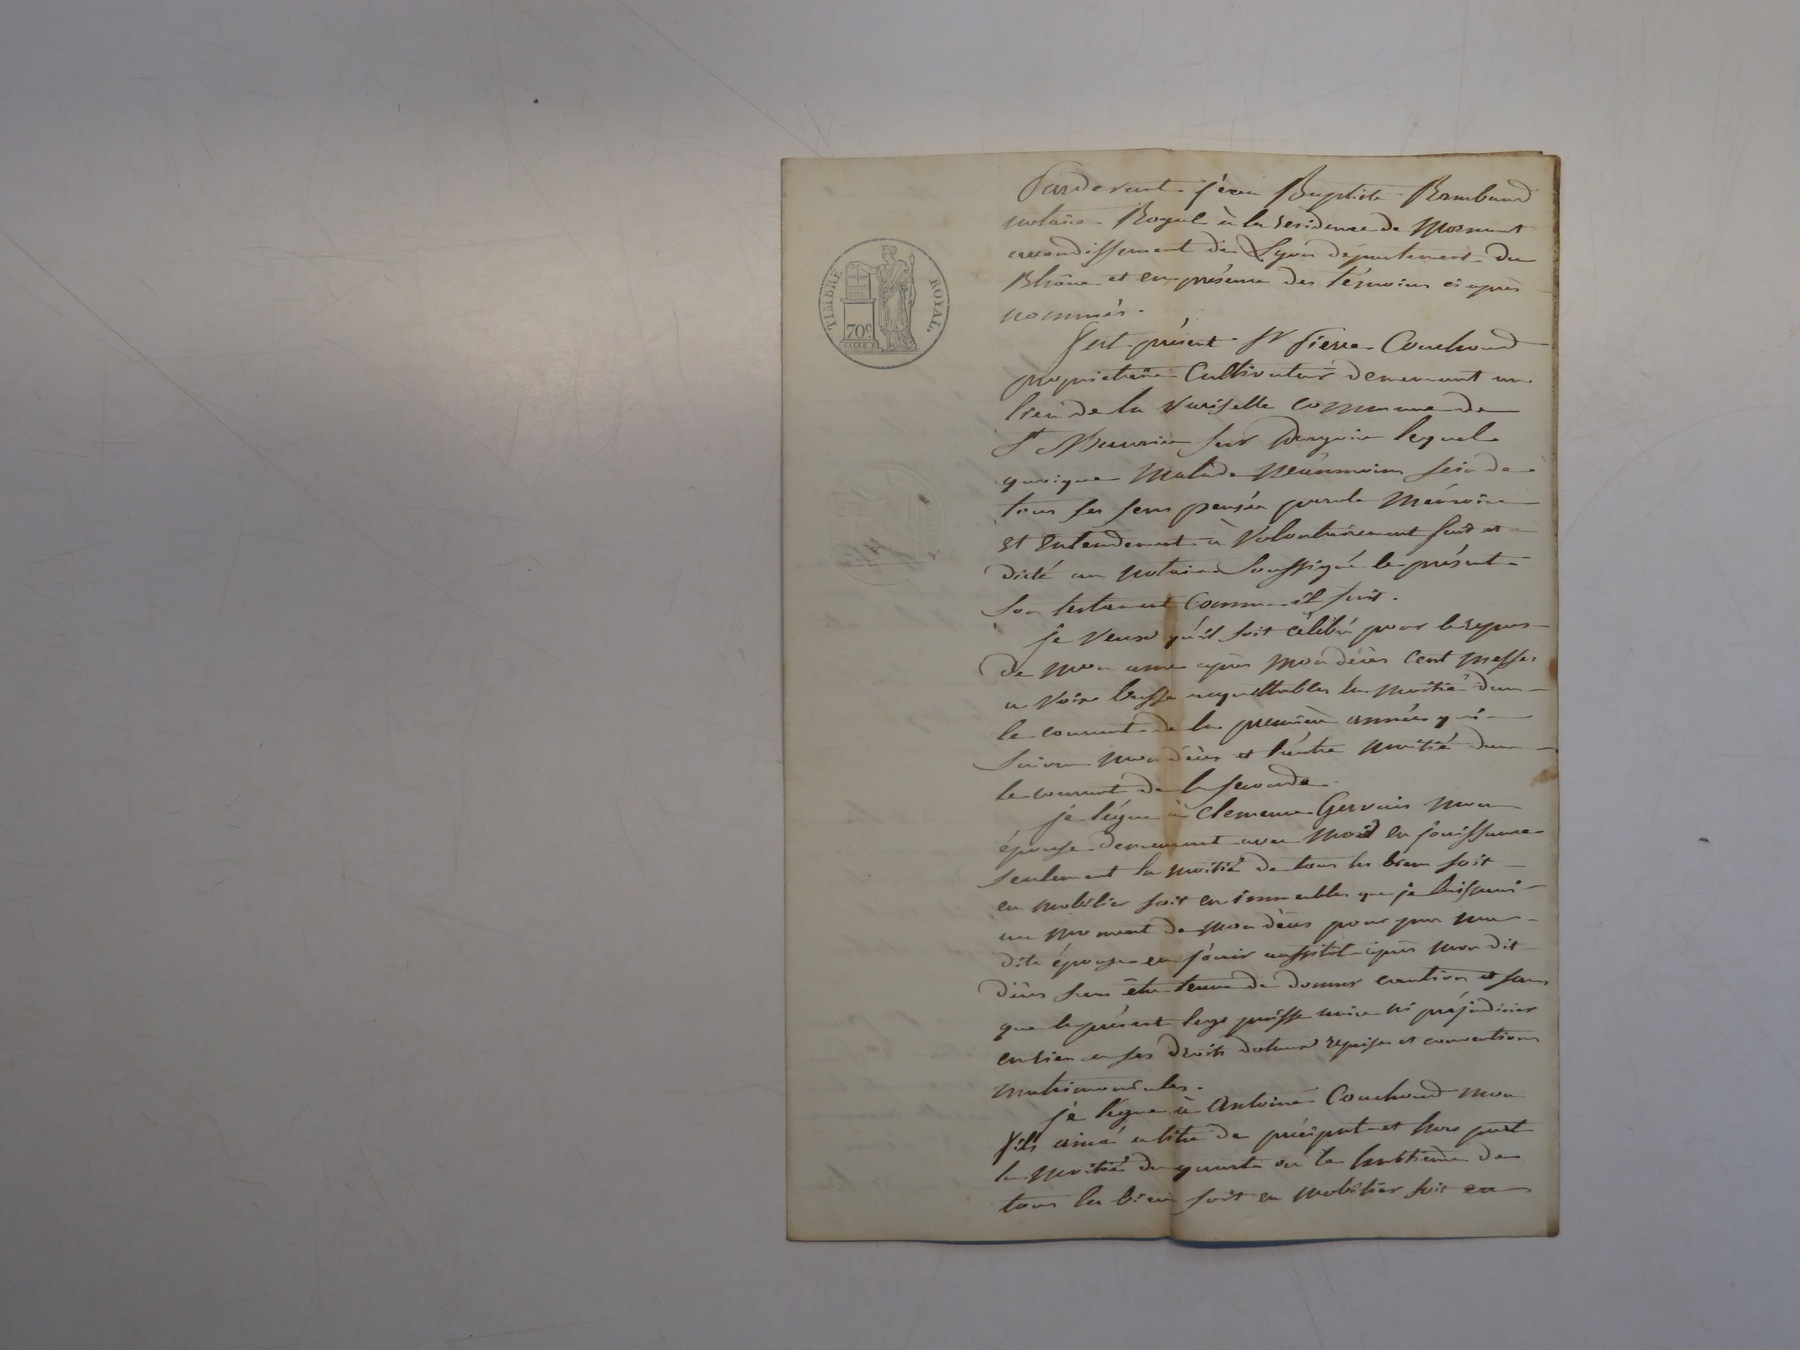 TIMBRE ROYAL.
70c
Pardevant jean Baptiste Rambaud
notaire Royal à la residence de Mornant
arrondissement de Lyon département du
Rhône et en présence des témoins ci après
nommés.
fut présent Sr pierre Couchoud
propriétaire Cultivateur demeurant au
lieu de la Variselle commune de
St Maurice sur Dargoire lequel
quoique Malade Néanmoins sain de
tous ses sens pensée parole Mémoire
et Entendement a Volontairement fait et
dicté au notaire soussigné le présent
son testament Comme il suit.
je veux qu'il soit célébré pour le repos
de mon ame après mon décès Cent messes
a voix basse acquittables la moitié dans
le courant de la première année qui
suivra mon décès et l'autre moitié dans
le courant de la seconde.
je légue à Clemence Gervais mon
épouse demeurant avec moi en jouissance
seulement la moitié de tous les biens soit
en mobilier soit en immeubles que je laisserai
au moment de mon décès pour par ma
dite épouse en jouir aussitôt après mon dit
décès sans être tenue de donner caution et sans
que le présent legs puisse nuire ni préjudicier
en rien a ses droits dotaux reprises et conventions
matrimoniales.
je légue à Antoine Couchoud mon
fils ainé a titre de préciput et hors part
la moitié du quart ou le huitième de
tous les biens soit en mobilier soit en